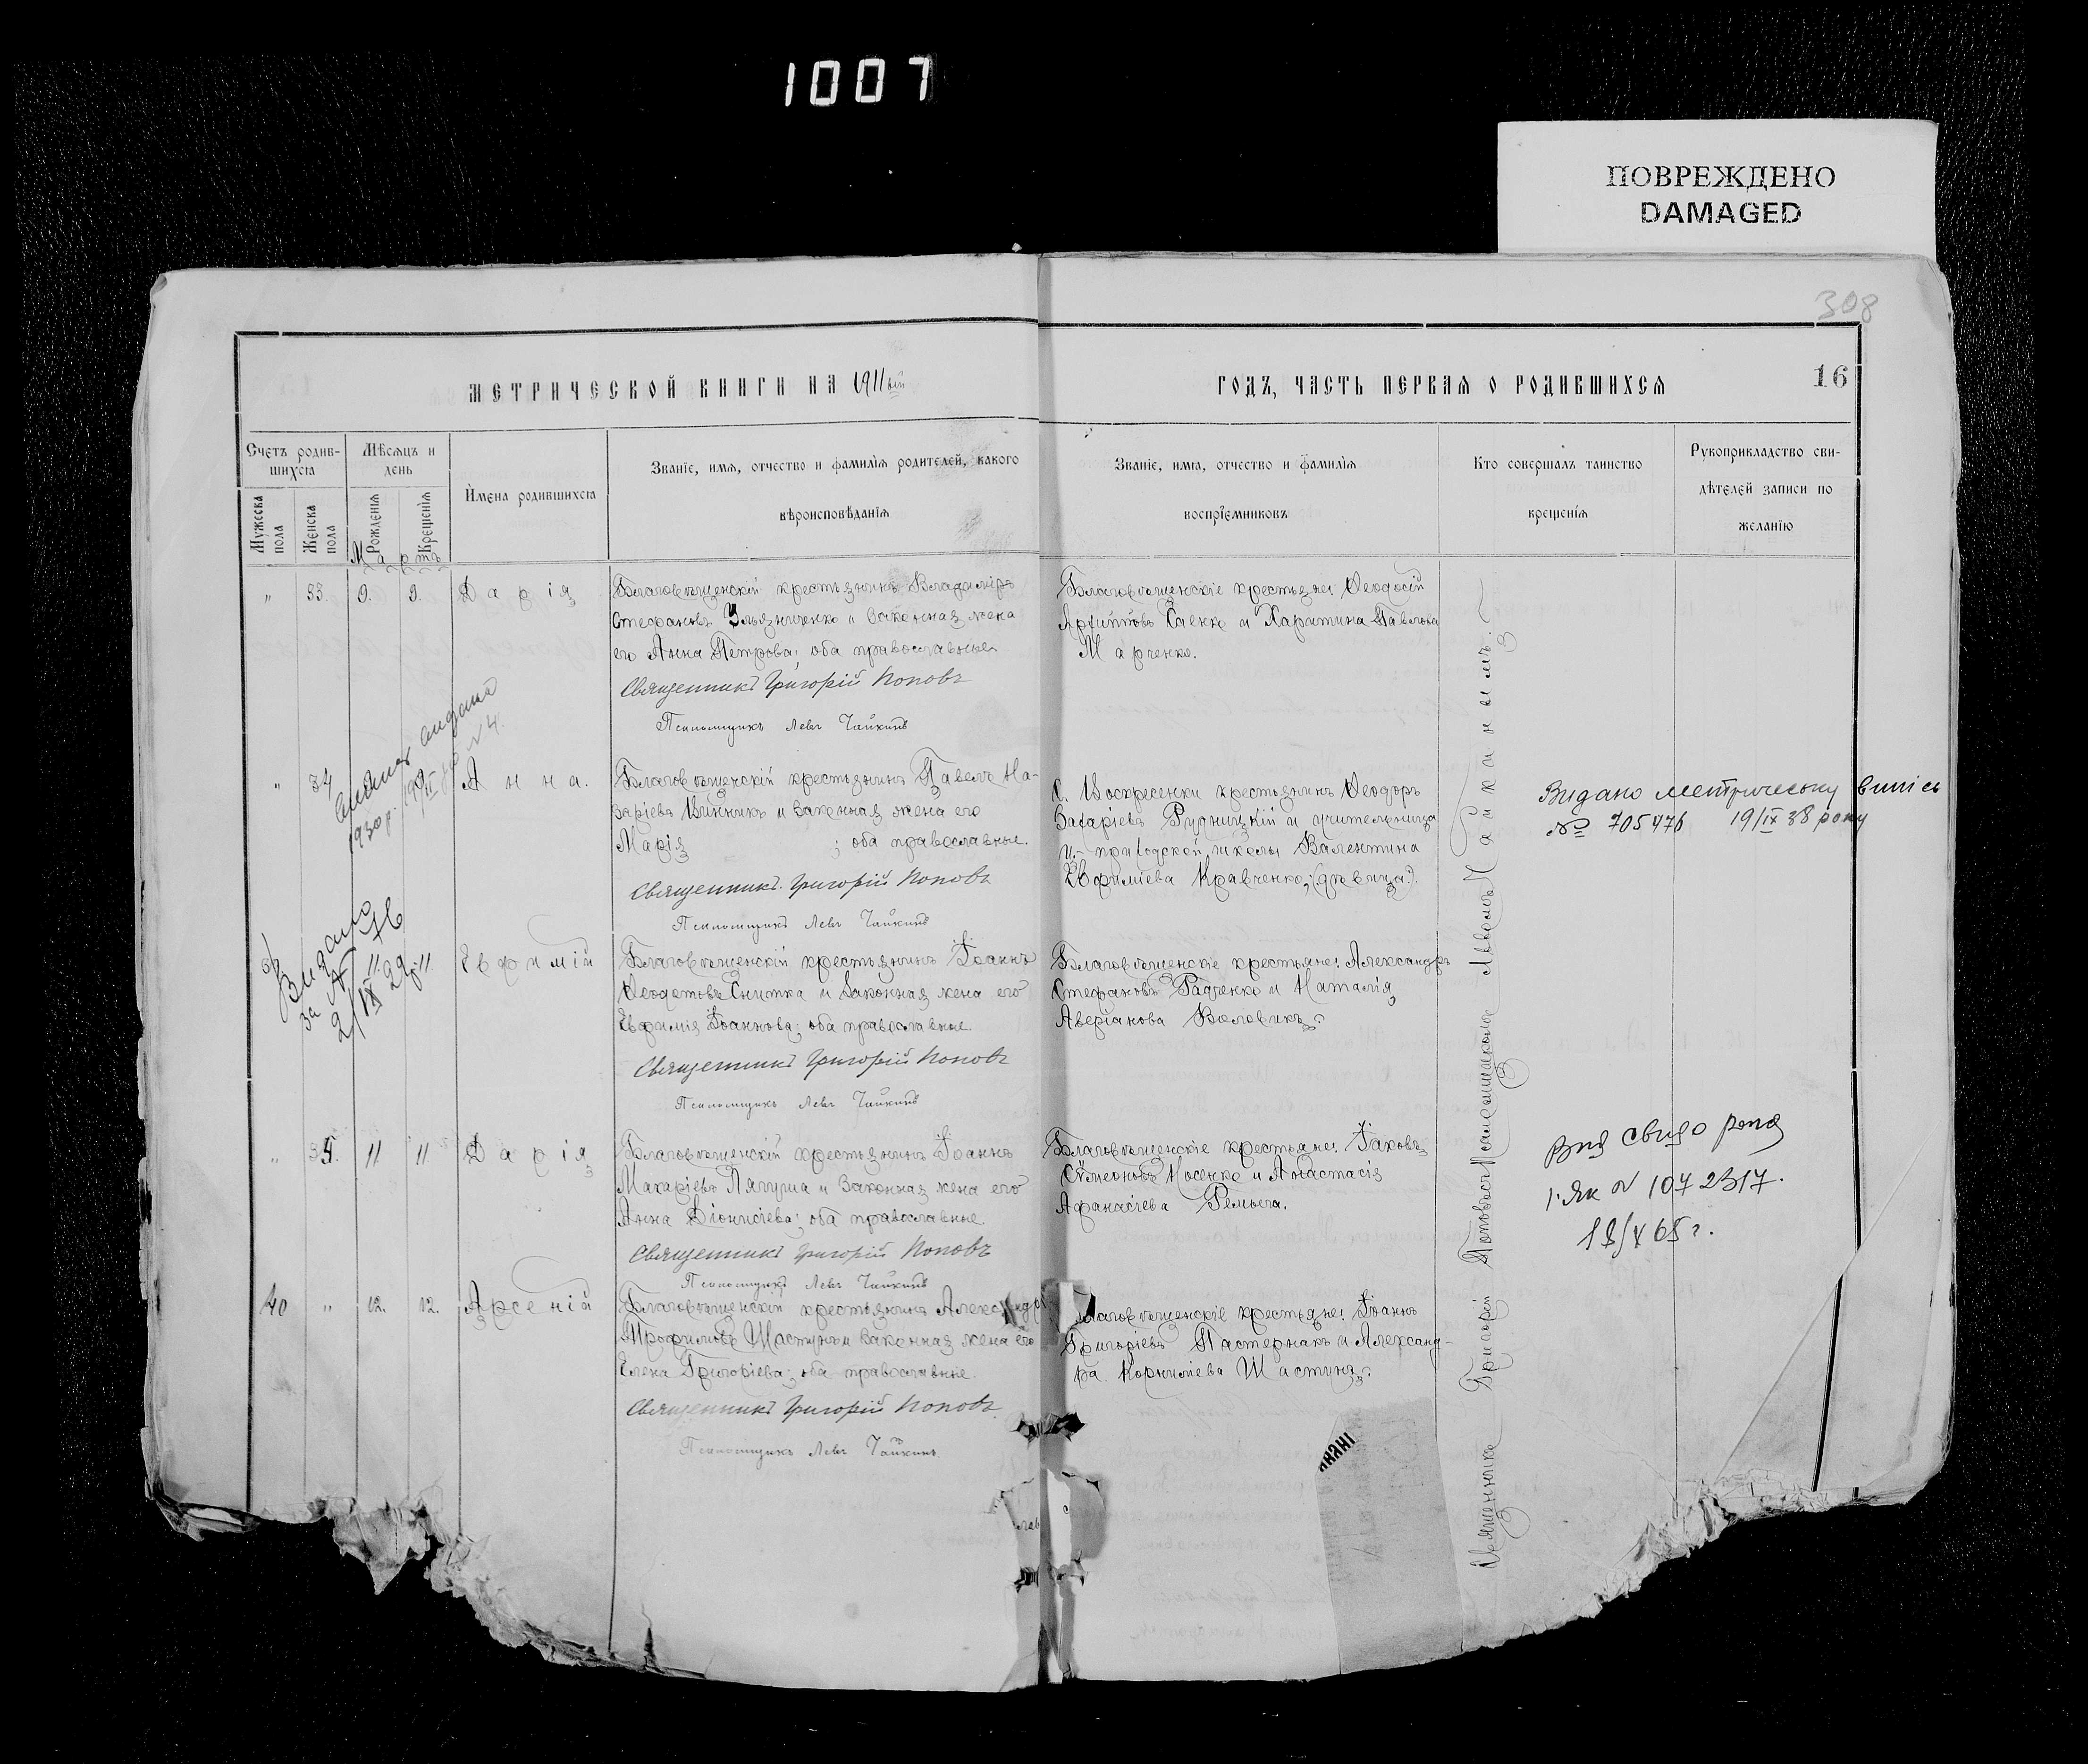 1007
ПОВРЕЖДЕНО
DAMAGED
308
МЕТРИЧЕСКОЙ КНИГИ НА 1911ый
ГОДЪ, ЧАСТЬ ПЕРВАЯ О РОДИВШИХСЯ
16
Счетъ родив-
шихся
Мужеска
пола
Женска
пола
Мѣсяцъ и
день
Рожденія
Крещенія
Имена родившихся
Званіе, имя, отчество и фамилія родителей, какого
вѣроисповѣданія
Званіе, имя, отчество и фамилія
воспріемниковъ
Кто совершалъ таинство
крещенія
Рукоприкладство сви-
дѣтелей записи по
желанію
Мартъ
" 33. 9. 9. Дарія
Благовѣщенскій крестьянинъ Владиміръ
Стефановъ Ульянниченко и законная жена
его Анна Петрова; оба православные
Священникъ Григорій Поповъ
Псаломщикъ Левъ Чайкинъ
Благовѣщенскіе крестьяне: Ѳеодосій
Архипповъ Саенко и Харитина Павлова
Марченко.
" 34 Анна.
Благовѣщенскій крестьянинъ Павелъ На-
заріевъ Винникъ и законная жена его
Марія ; оба православные.
Священникъ Григорій Поповъ
Псаломщикъ Левъ Чайкинъ
С. Воскресенки крестьянинъ Ѳеодоръ
Захаріевъ Рудницкій и учительница
ц.-приходской школы Валентина
Евфиміева Кравченко, (дѣвица.).
Видано метричеську випісь
№ 705476 19/IX 38 року
Видано
за №
2/IX 29 р.
11. 11. Евфимій
Благовѣщенскій крестьянинъ Іоаннъ
Ѳеодотовъ Снитка и законная жена его
Евфимія Іоаннова; оба православные.
Священникъ Григорій Поповъ
Псаломщикъ Левъ Чайкинъ
Благовѣщенскіе крестьяне: Александръ
Стефановъ Радченко и Наталія
Аверіанова Воловикъ.
" 35. 11 11. Дарія
Благовѣщенскій крестьянинъ Іоаннъ
Макаріевъ Лягуша и законная жена его
Анна Діонисіева; оба православные.
Священникъ Григорій Поповъ
Псаломщикъ Левъ Чайкинъ
Благовѣщенскіе крестьяне: Іаковъ
Сѵмеоновъ Носенко и Анастасія
Афанасіева
№ 1072317.
40 " 12. 12. Арсеній
Благовѣщенскій крестьянинъ Александръ
Трофимовъ Шастунъ и законная жена его
Елена Григоріева; оба православные.
Священникъ Григорій Поповъ
Псаломщикъ Левъ Чайкинъ.
Благовѣщенскіе крестьяне: Іоаннъ
Григоріевъ Пастернакъ и Александ-
ра Корниліева Шастунъ.
Священникъ Григорій Поповъ съ Псаломщикомъ Львомъ Чайкинымъ.